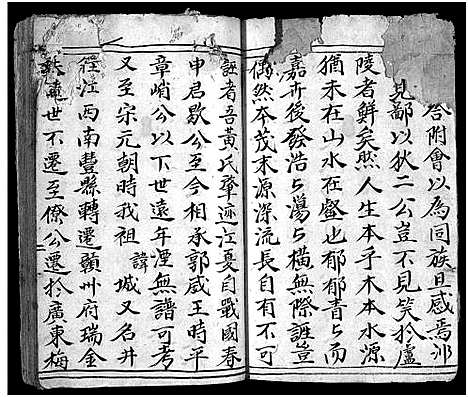 合附會以為同族旦感焉邠
見鄙以狄二公豈不見笑於廬
陵者鮮矣然人生本乎木本水源
猶未在山水在壑也郁郁青与而
嘉㪽後發浩与蕩与橫無際誰豈
偶然本茂末源深流長自有不可
誣者吾黃氏肇迹江夏自戰國春
申君歇公至今相承郭威王時平
章峭公以下世遠年湮無譜可考
又至宋元朝時我祖 諱 城又名井
徑江西南豐縣轉遷贛州府瑞金
世不遷至僚公遷於廣東梅